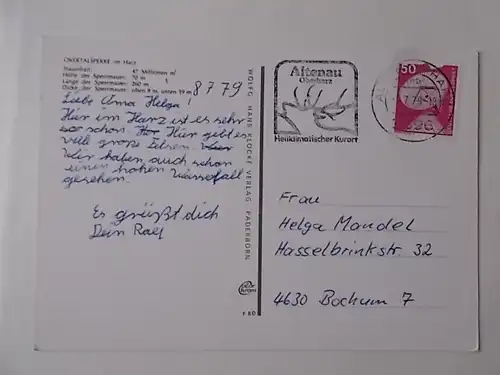 OKERTALSPERRE im Harz
Stauinhalt: 47 Millionen m³
Höhe der Sperrmauer: 70 m
Länge der Sperrmauer: 260 m
Dicke der Sperrmauer: oben 8 m, unten 19 m
8 7 79
Liebe Oma Helga!
Hier im Harz ist es sehr
schön. Hier gibt es
viele große
Wir haben auch schon
einen hohen Wasserfall
gesehen.
Es grüßt dich
Dein Ralf
WOLFG. HANS KLOCKE VERLAG PADERBORN
F 80
Altenau
Oberharz
Heilklimatischer Kurort
7.79
50
Frau
Helga Mandel
Hasselbrinkstr. 32
4630 Bochum 7